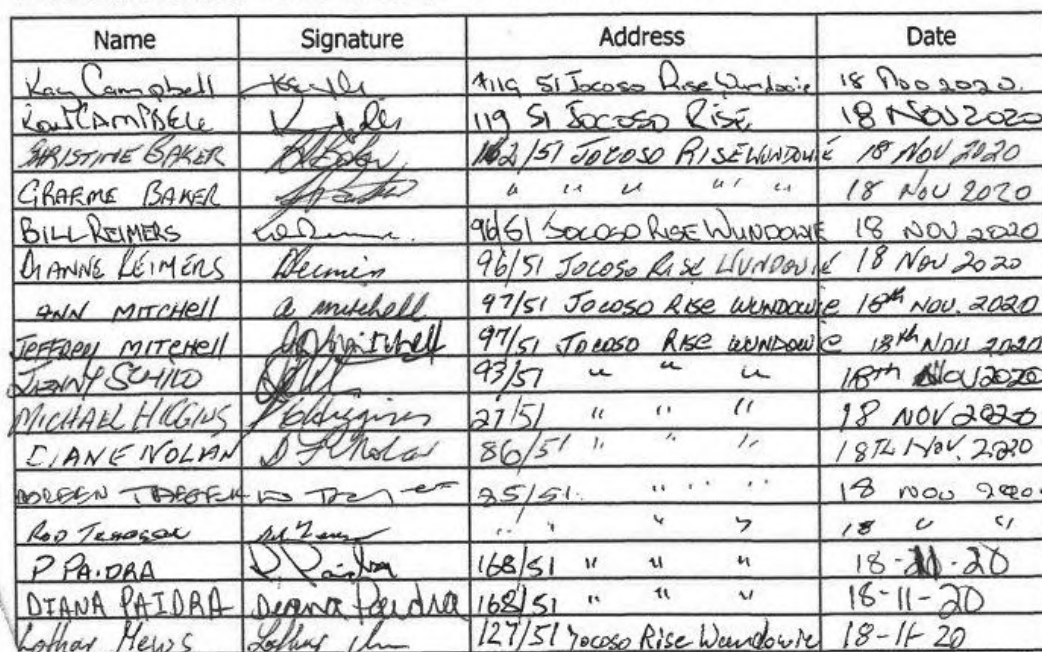 Name Signature Address Date
Kay Campbell #119 51 Jocoso Rise Wundowie 18 Nov 2020.
CAMPBELL 119 51 Jocoso RISE 18 NOV 2020
CHRISTINE BAKER 162/51 JOCOSO RISE WUNDOWIE 18 NOV 2020
GRAEME BAKER " " " " " 18 Nov 2020
BILL REIMERS 96/51 JOCOSO RISE WUNDOWIE 18 NOV 2020
DIANNE REIMERS 96/51 JOCOSO RISE WUNDOWIE 18 Nov 2020
ANN MITCHEll a mitchell 97/51 JOCOSO RISE WUNDOWIE 18th NOV. 2020
JEFFREY MITCHEll 97/51 JOCOSO RISE WUNDOWIE 18th NOV 2020
JENNY SCHILD 93/51 " " " 18th NOV 2020
MICHAEL HIGGINS 27/51 " " " 18 NOV 2020
DIANE NOLAN 86/51 " " " 18TH Nov. 2020
25/51. " " " " 18 NOV 2020.
ROD " " " " 18 " "
P PAIDRA P Paidra 168/51 " " " 18-11-20
DIANA PAIDRA Diana Paidra 168/51 " " " 18-11-20
Lothar Mews Lothar 127/51 Jocoso Rise Wundowie 18-11-20